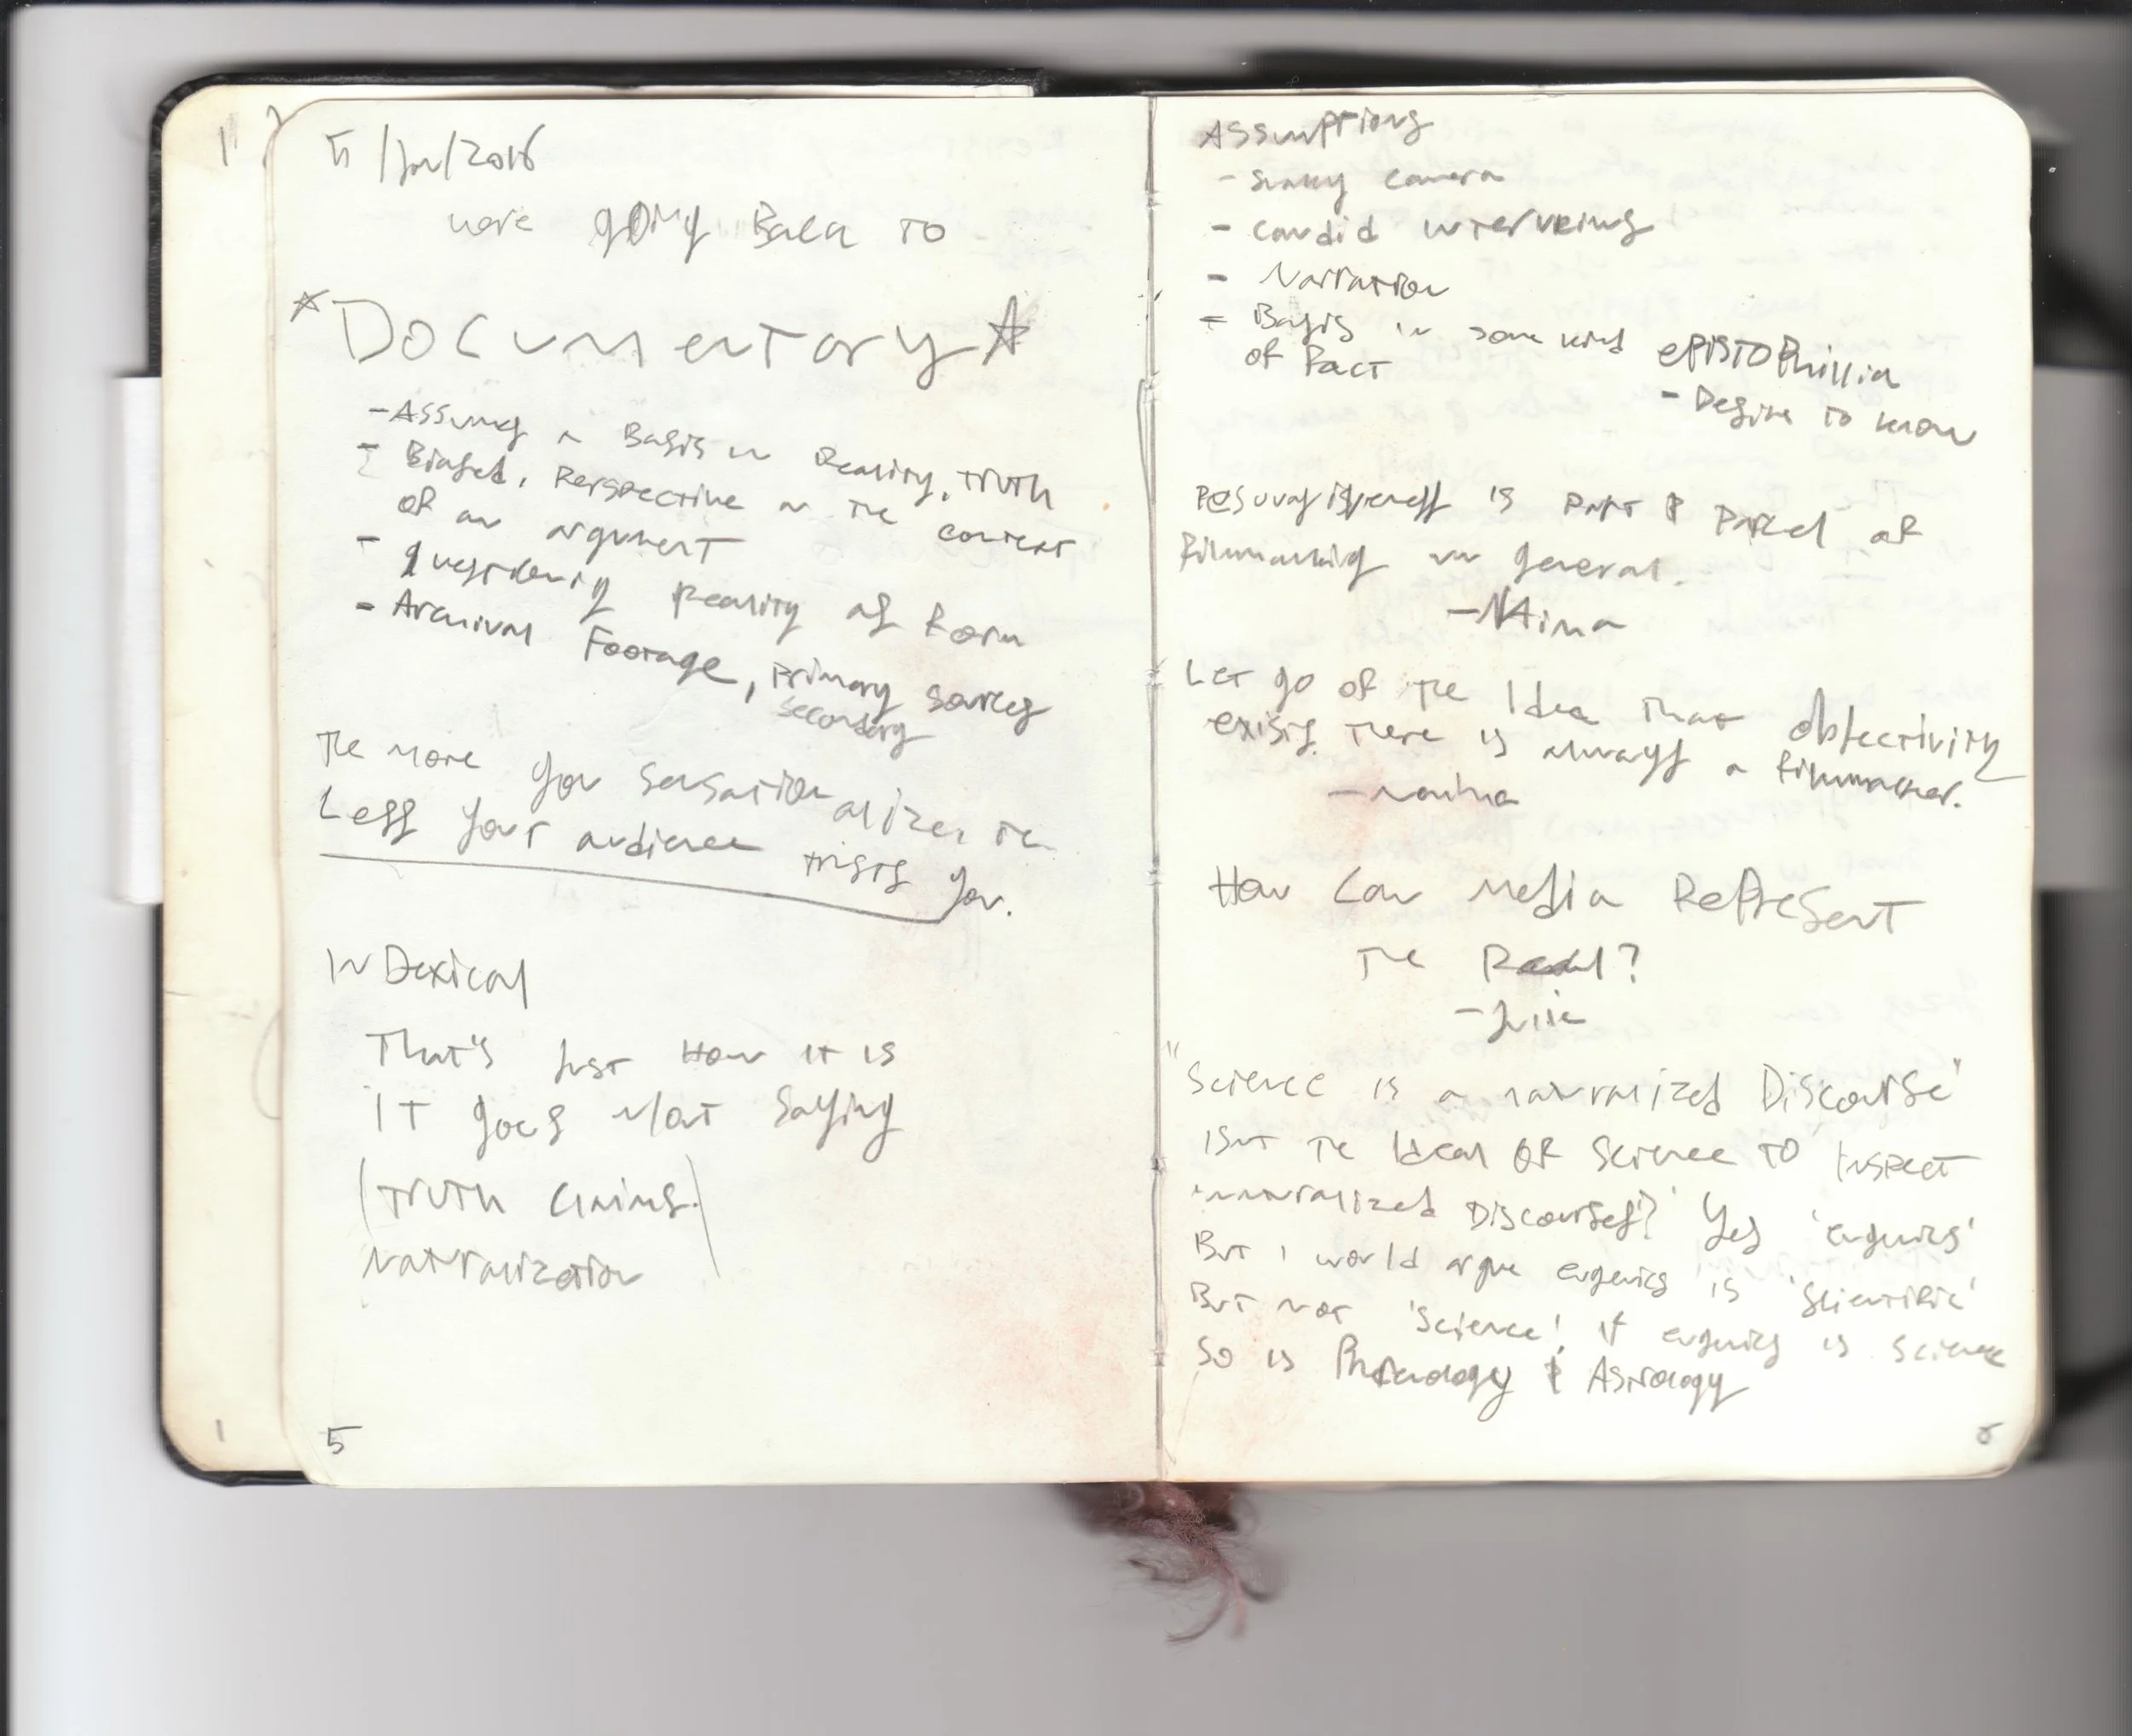 5/Jan/2016
we're going Back to
*Documentary☆
- Assumes a Basis in Reality, Truth
- Biased, Perspective in the context
of an argument
- questioning Reality of Form
- Archival Footage, Primary sources
secondary
The more you sensationalize, the
Less your audience trusts you.
InDexical
That's just How it is
IT goes w/out saying
(TRUTH Claims.)
Naturalization
5
Assumptions
- shaky camera
- candid interviews
- Narration
- Basis in some kind
of Fact
epistophillia
- Desire to know
is part & parcel of
Filmmaking in general.
- NAima
Let go of the Idea that objectivity
exists. There is always a filmmaker.
- naima
How can Media Represent
The Real?
- Julie
"Science is a naturalized Discourse"
isnt the Ideal OF Science TO Inspect
'naturalized Discourses?' Yes 'eugenics'
But I would argue eugenics is 'scientific'
But not 'science'. if eugenics is science
So is Phrenology & Astrology
6